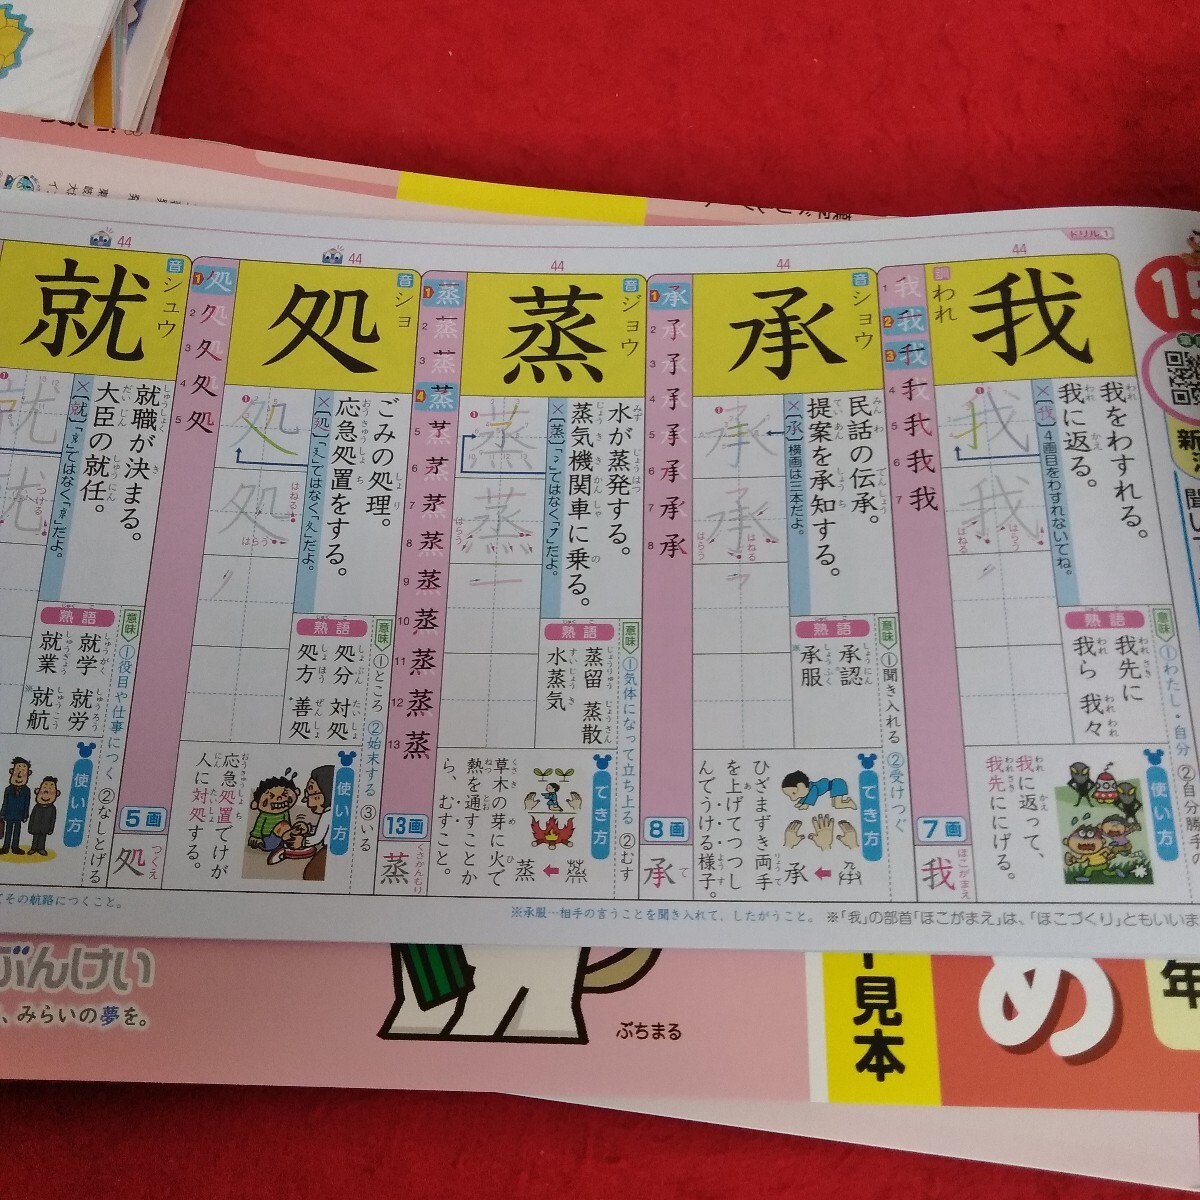 ドリル1
15
44
我
訓
われ
1 我
2 我
3 我
4 我
5 我
6 我
7 我
7画
我 ほこがまえ
我をわすれる。
我に返る。
×[我]4画目をわすれないでね。
はねる
はらう
意味
①わたし・自分
熟語
我先に
我ら 我々
使い方
我に返って、
我先ににげる。
44
承
音
ショウ
1 承
2 承
3 承
4 承
5 承
6 承
7 承
8 承
8画
承 て
民話の伝承。
提案を承知する。
×[承]横画は三本だよ。
はねる
はらう
意味
①聞き入れる ②受けつぐ
熟語
承認
※承服
でき方
ひざまずき両手
を上げてつつし
んでうける様子。
44
蒸
音
ジョウ
1 蒸
2 蒸
3 蒸
4 蒸
5 蒸
6 蒸
7 蒸
8 蒸
9 蒸
10 蒸
11 蒸
12 蒸
13 蒸
13画
蒸 くさかんむり
水が蒸発する。
蒸気機関車に乗る。
はらう
意味
①気体になって立ち上る ②むす
熟語
蒸留 蒸散
水蒸気
でき方
草木の芽に火で
熱を通すことか
ら、むすこと。
44
処
音
ショ
1 処
2 処
3 処
4 処
5 処
5画
処 つくえ
ごみの処理。
応急処置をする。
はねる
はらう
意味
①ところ ②始末する ③いる
熟語
処分 対処
処方 善処
使い方
応急処置でけが
人に対処する。
44
就
音
シュウ
就職が決まる。
大臣の就任。
はねる
意味
①役目や仕事につく ②なしとげる
熟語
就学 就労
就業 就航
使い方
てその航路につくこと。
※承服…相手の言うことを聞き入れて、したがうこと。
※「我」の部首「ほこがまえ」は、「ほこづくり」ともいいま
ぶんけい
、みらいの夢を。
ぷちまる
見本
め
年